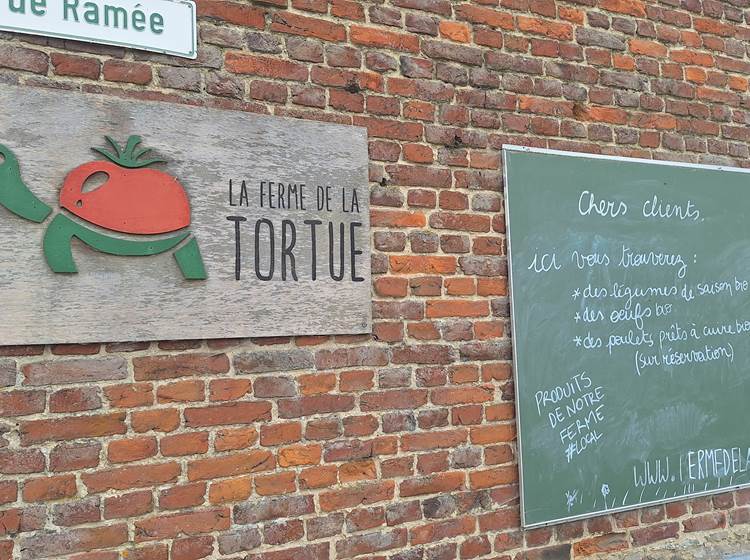 de Ramée
LA FERME DE LA
TORTUE
Chers clients,
ici vous trouverez :
*des légumes de saison bio
*des oeufs bio
*des poulets prêts à cuire bio
(sur réservation)
PRODUITS
DE NOTRE
FERME
#LOCAL